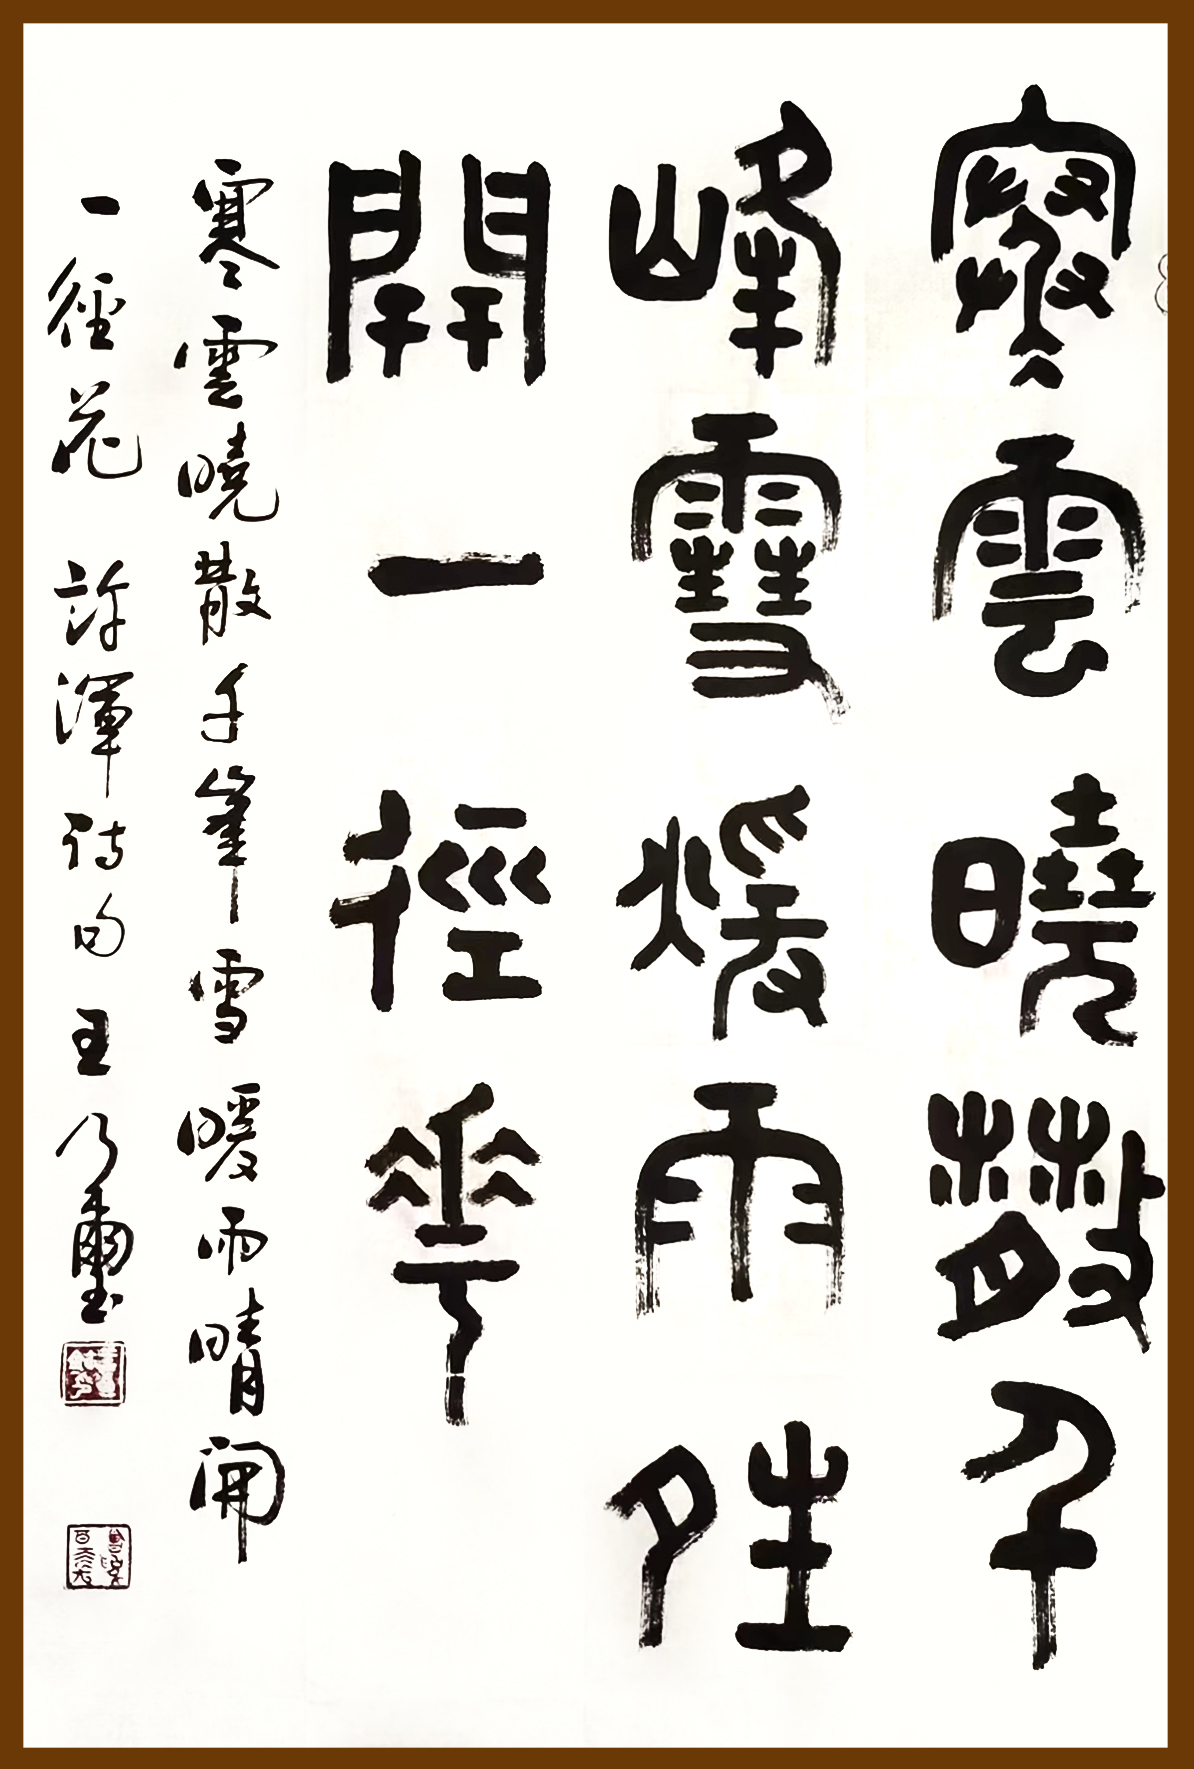 寒雲曉散千
峰雪煖雨夝
開一徑華
寒雲曉散千峯雪暖雨晴開
一徑花 許渾詩句 王乃璽